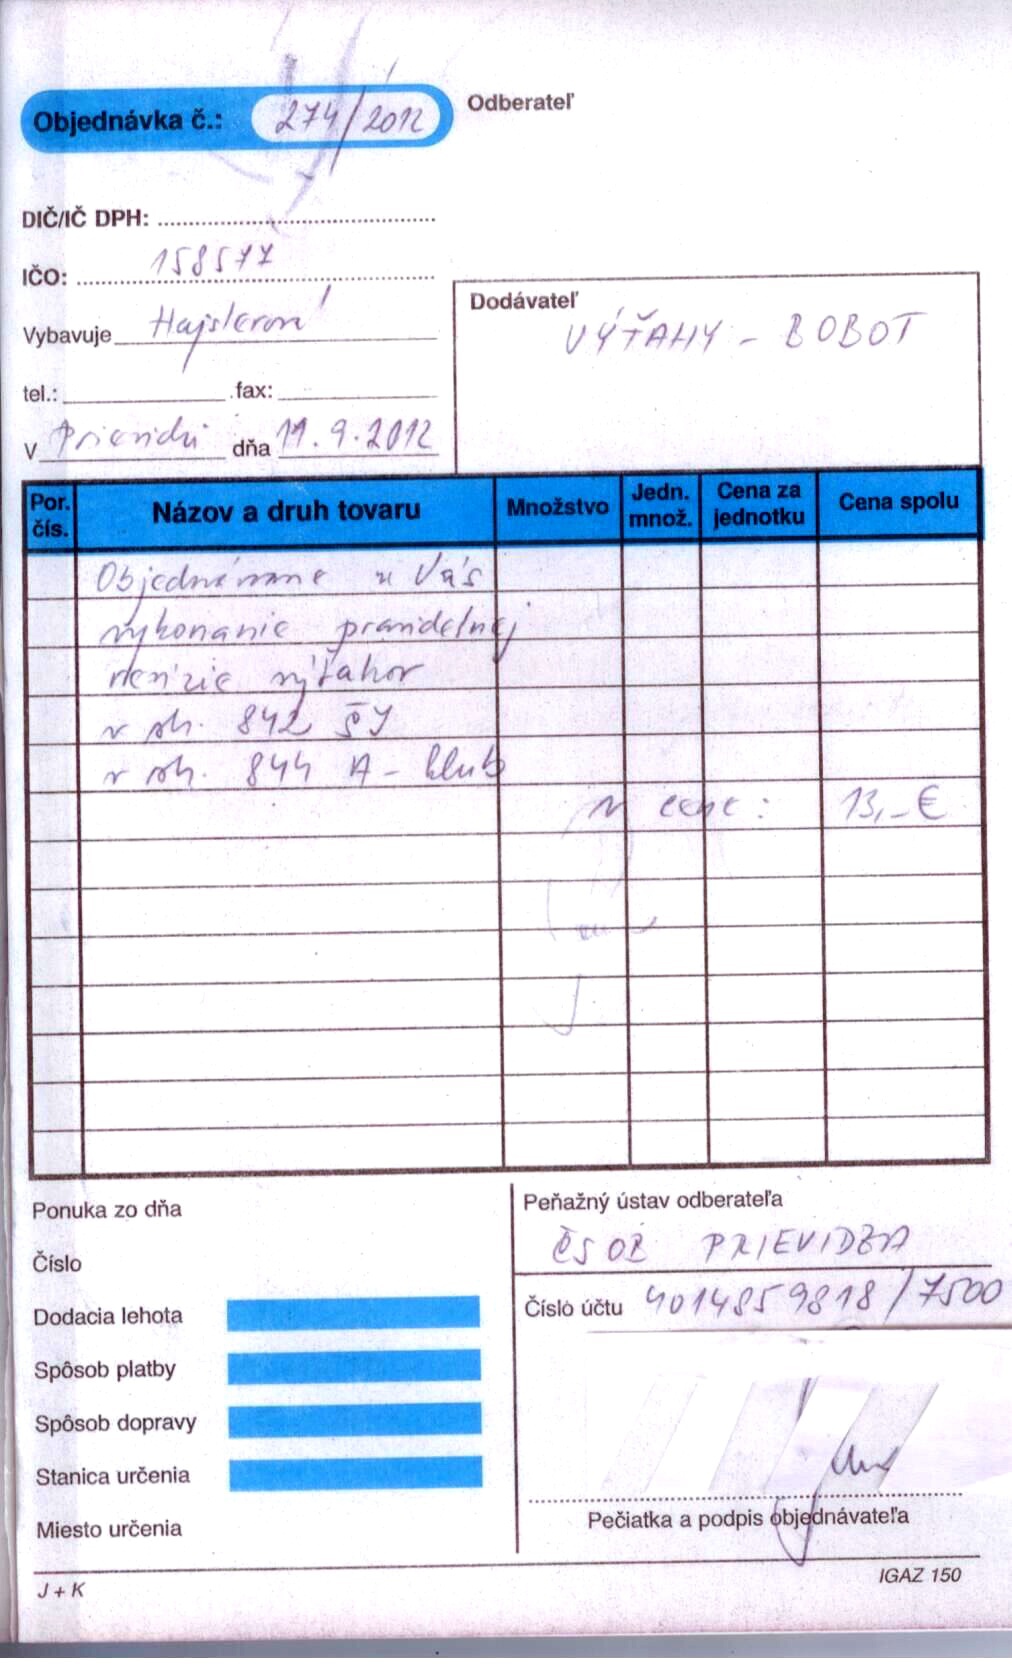 Objednávka č.: 274/2012
Odberateľ
DIČ/IČ DPH:
IČO: 158577
Vybavuje Hajslerová
tel.: fax:
V Prievidzi dňa 11.9.2012
Dodávateľ
VÝŤAHY - BOBOT
Por. čís. Názov a druh tovaru Množstvo Jedn. množ. Cena za jednotku Cena spolu
Objednávame u Vás
vykonanie pravidelnej
revízie výťahov
v ob. 842 ŠJ
v ob. 844 A - klub
v cene: 13,- €
Ponuka zo dňa
Číslo
Dodacia lehota
Spôsob platby
Spôsob dopravy
Stanica určenia
Miesto určenia
Peňažný ústav odberateľa
ČSOB PRIEVIDZA
Číslo účtu 4014859818/7500
Pečiatka a podpis objednávateľa
J + K
IGAZ 150